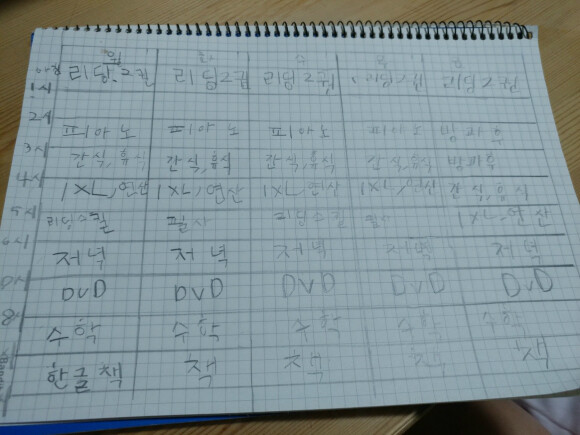 월 화 수 목 금
리딩2권 리딩2권 리딩2권 리딩2권 리딩2권
1시
2시 피아노 피아노 피아노 피아노 방과후
3시 간식,휴식 간식,휴식 간식,휴식 간식,휴식 방과후
4시 IXL,연산 IXL,연산 IXL,연산 IXL,연산 간식,휴식
5시 리딩스킬 필사 리딩스킬 필사 IXL,연산
저녁 저녁 저녁 저녁 저녁
DVD DVD DVD DVD DVD
수학 수학 수학 수학 수학
한글책 책 책 책 책